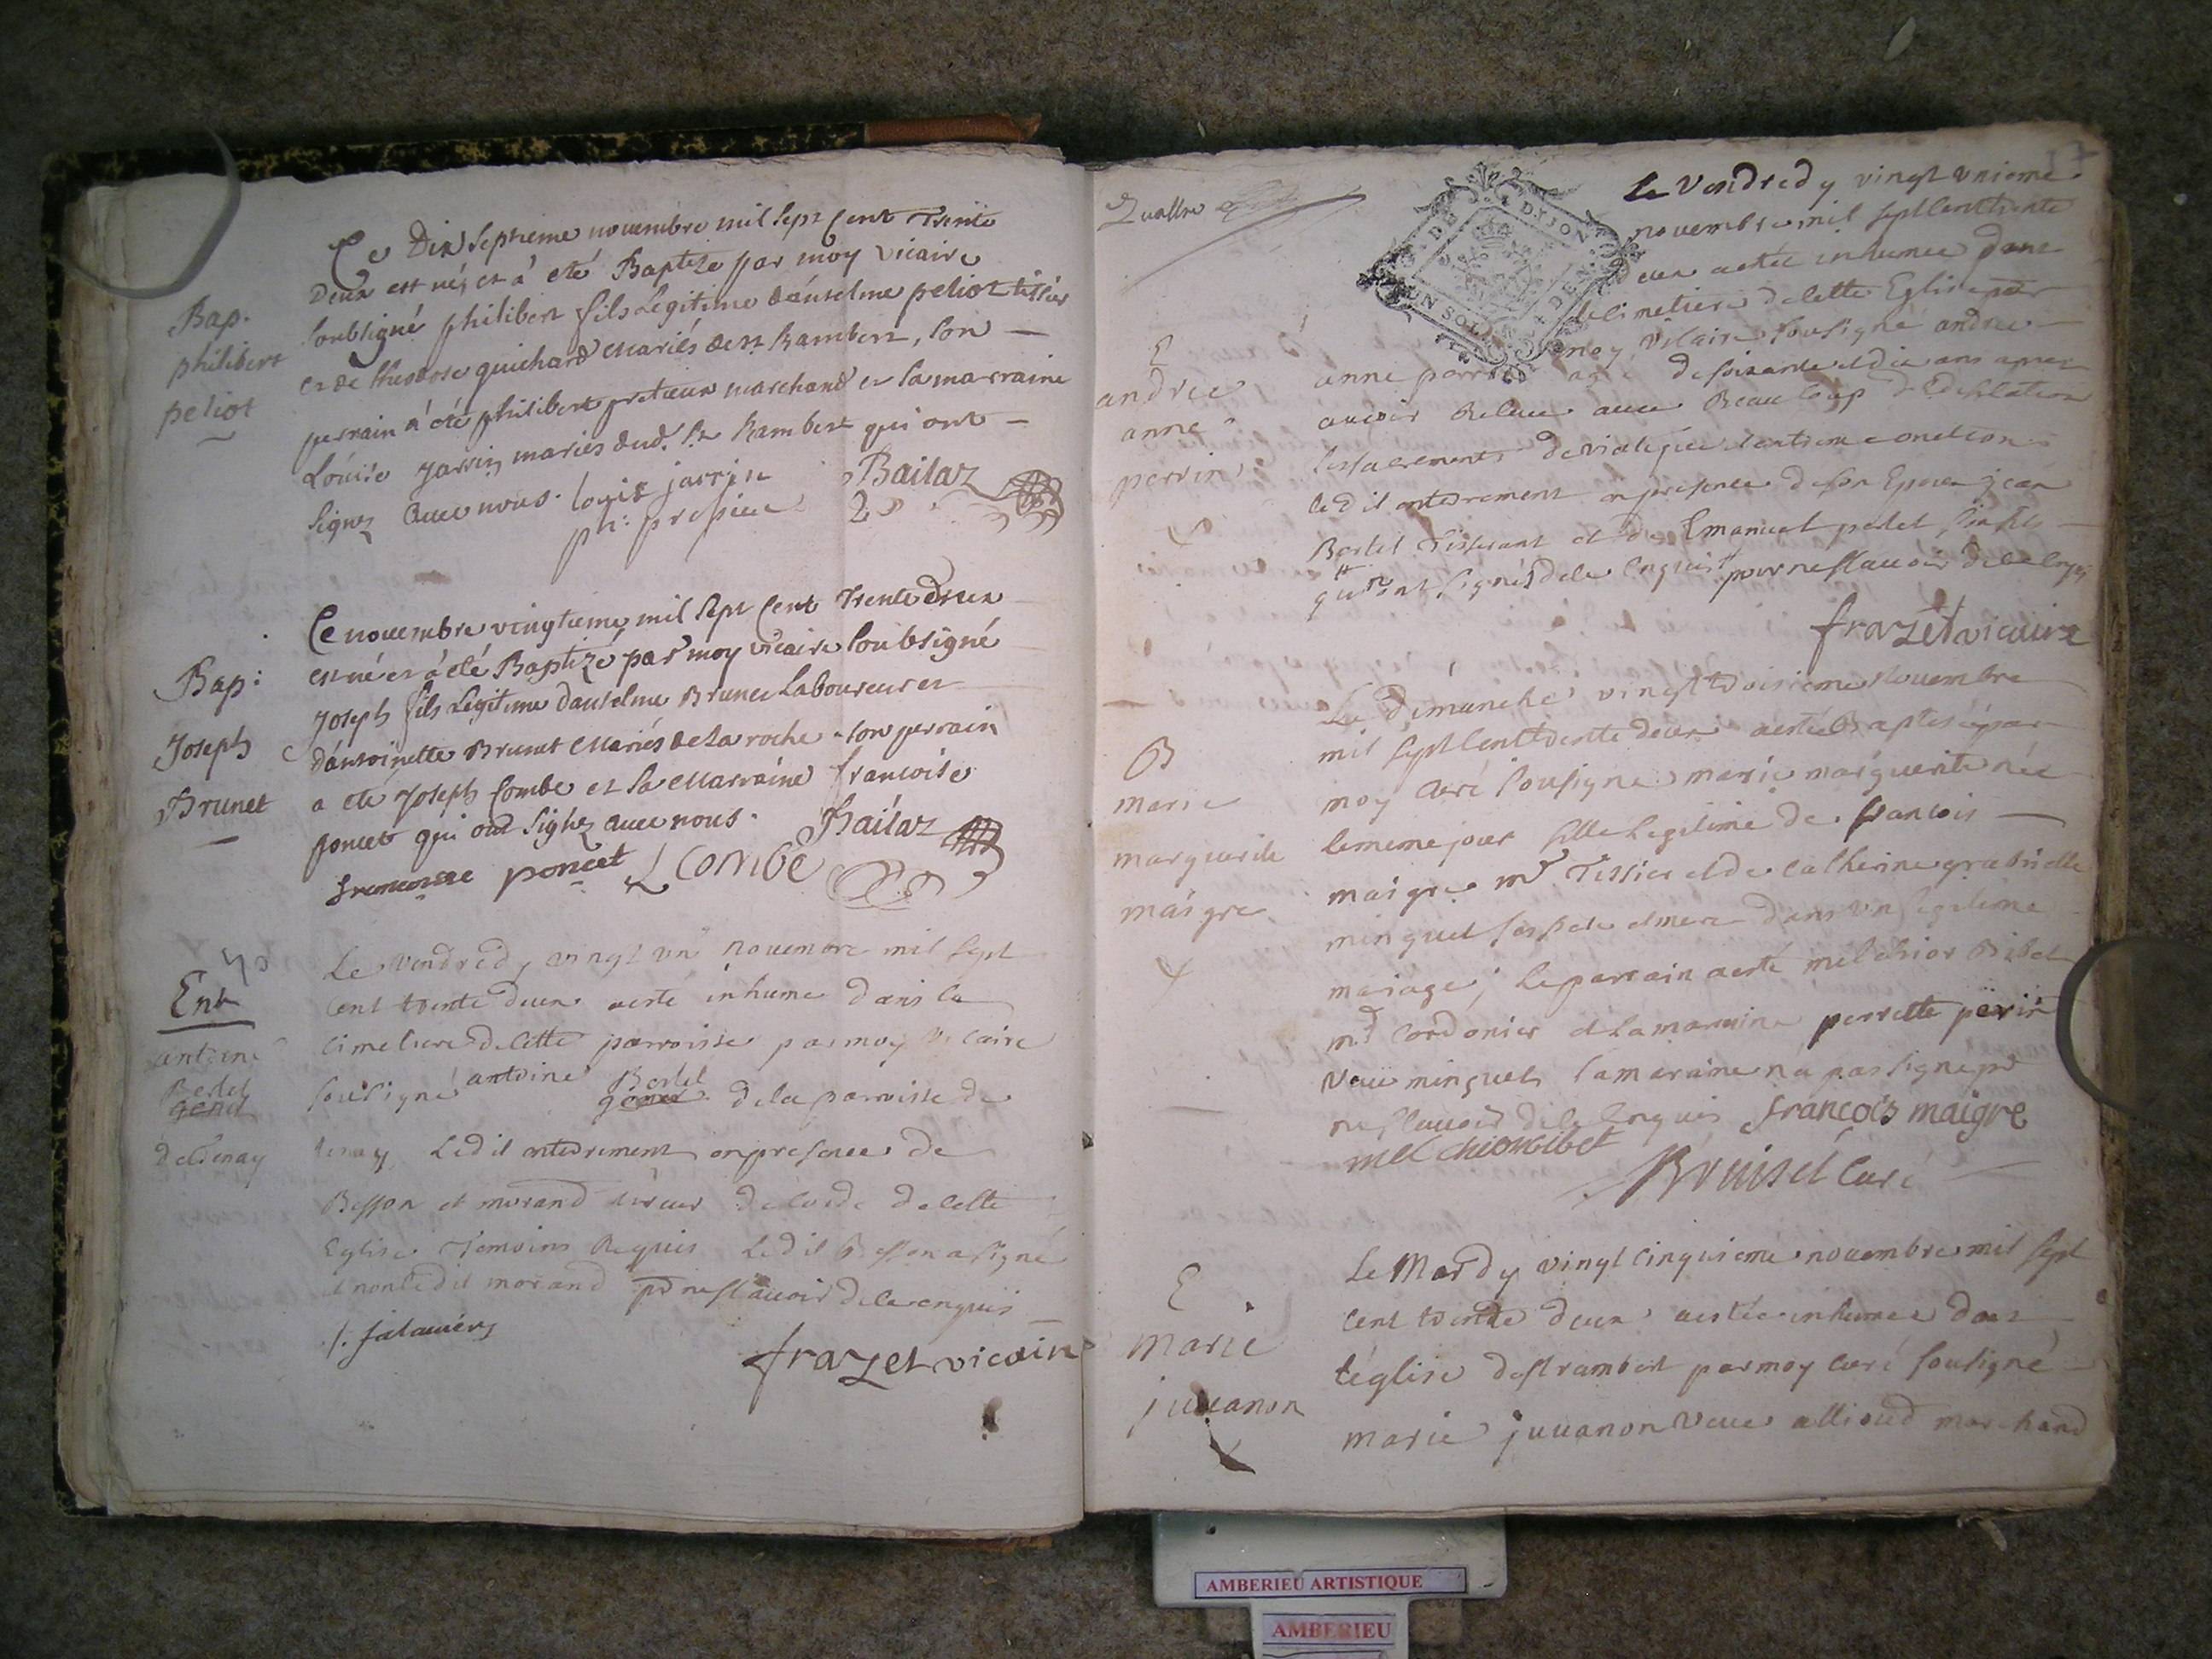 Ce Dix septieme novembre mil sept cent Trente
Deux est néz et à eté Baptize par moy vicaire
soubsigné philibert fils Legitime d'anselme peliot tissier
et de theodose guichard Mariés de st Rambert, son
perrain à été philibert marchand et la marraine
Louise Jarrin mariés dud. St Rambert qui ont
signez avec nous. louise jarrin Bailaz
ph:
Bap.
philibert
peliot
Ce novembre vingtieme mil sept cent Trente deux
est né et à eté Baptizé par moy vicaire soubsigné
Joseph fils Legitime d'anselme Brunet Laboureur et
d'antoinette Brunet Mariés de La roche - son perrain
a eté Joseph Combe et la Marraine francoise
poncet qui ont signez avec nous. Bailaz
francoise poncet J Combe
Bap:
Joseph
Brunet
Le Vendredy vingt un novembre mil sept
cent trente deux aesté inhumé dans le
cimetiere de cette parroisse par moy vicaire
sousigné antoine Bertet de la paroisse de
tenay Ledit enterrement en presence de
Besson et morand de corde de cette
Eglise Temoins Requis Ledit Besson a signé
et non ledit morand pr ne scavoir de ce enquis
frazet vicaire
Ent
antoine
Bertet
de Tenay
Quattre
DE DIJON
UN SOL
Le Vendredy vingt unieme
novembre mil sept cent trente
deux aestée inhumée dans
le cimetiere de cette Eglise par
moy Vicaire sousigné andrée
anne perrin agée de soixante et dix ans apres
avoir Receu avec Beaucoup d
les sacrements de viatique et extreme onction
ledit enterrement en presence de son Epoux jean
Bertet Tisserant et de Emanuel pertet
qui n'ont signés de ce enquis pour ne scavoir de ce enquis
frazet vicaire
E
andrée
anne
perrin
Le dimanche vingt troisieme Novembre
mil sept cent trente deux aestée Baptisée par
moy curé sousigné marie marguerite née
le meme jour fille Legitime de francois
maigre md Tissier et de catherine grabrielle
minguet ses pere et mere dans un legitime
mariage; le parrain aesté melchior Ribet
md Cordonier et la maraine perrette perin
veuve minguet la maraine n'a pas signé pr
ne scavoir de ce enquis francois maigre
melchior ribet
Bruiset Curé
B
marie
marguerite
maigre
Le Mardy vingt cinquieme novembre mil sept
cent trente deux aestée inhumée dans
l'église de st rambert par moy curé sousigné
marie juvanon veuve allioud marchand
E
marie
juvanon
AMBERIEU ARTISTIQUE
AMBERIEU